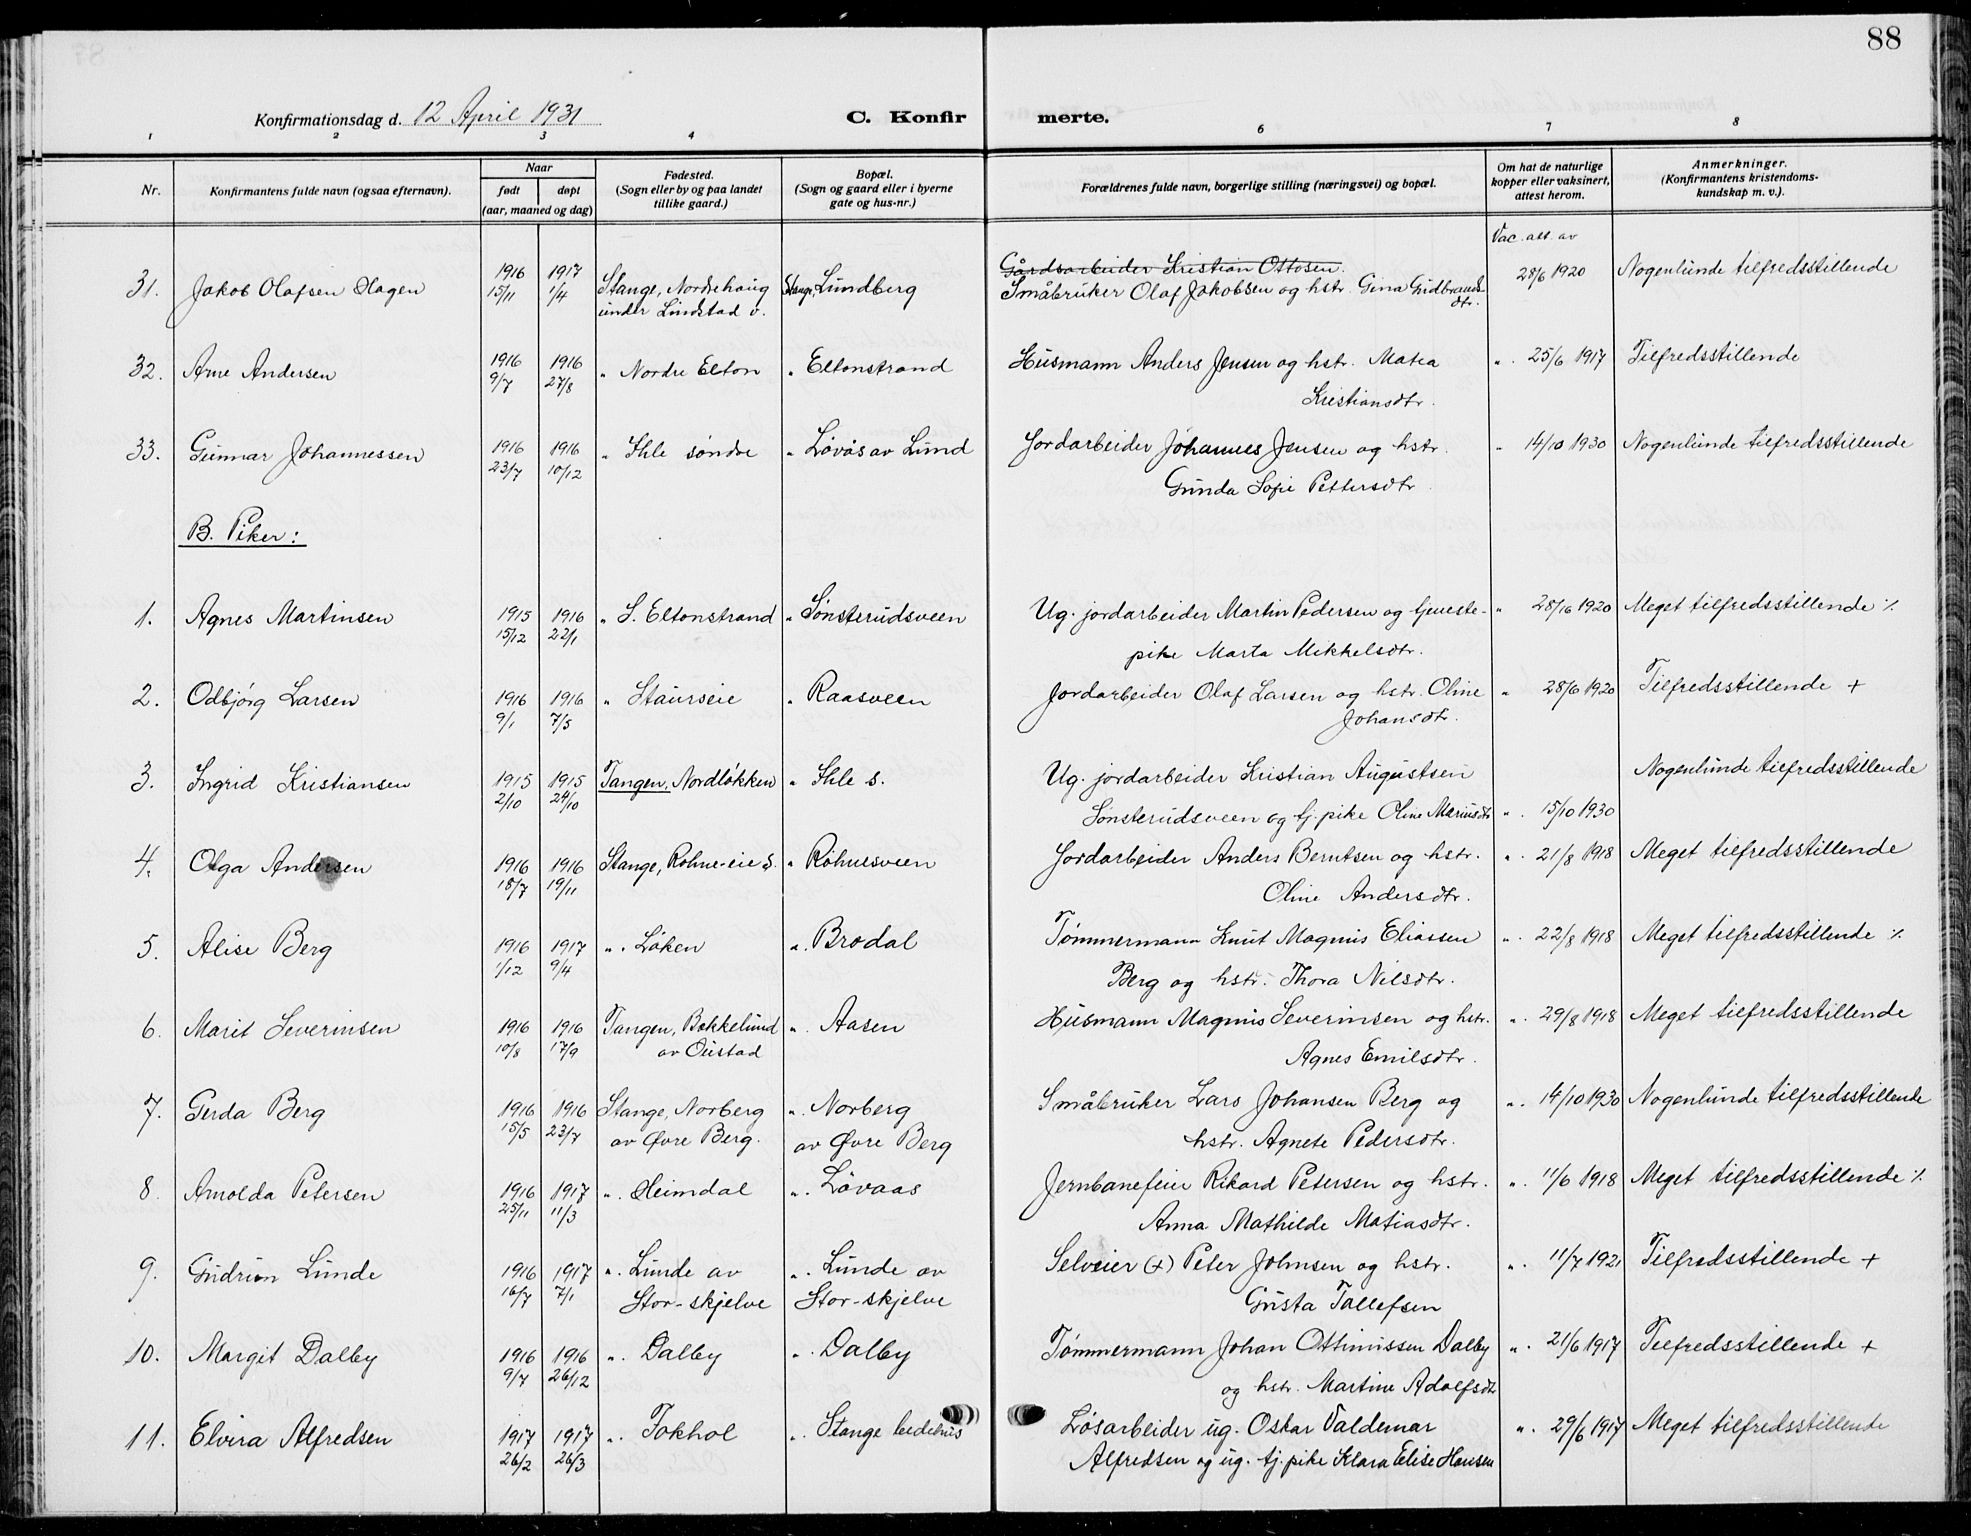 88
Konfirmationsdag d. 12 April 1931 C. Konfir merte.
1 2 3 4 6 7 8
Nr. Konfirmantens fulde navn (ogsaa efternavn). Naar født døpt (aar, maaned og dag) Fødested. (Sogn eller by og paa landet tillike gaard.) Bopæl. (Sogn og gaard eller i byerne gate og hus-nr.) Forældrenes fulde navn, borgerlige stilling (næringsvei) og bopæl. Om hat de naturlige kopper eller vaksinert, attest herom. Anmerkninger. (Konfirmantens kristendoms- kundskap m. v.).
Vac. att. av
Gårdsarbeider Kristian Ottosen.
31. Jakob Olafsen Hagen 1916 15/11 1917 1/4 Stange, Nordrehaug Stange, Lundberg Småbruker Olaf Jakobsen og hstr. Gina Gudbrands- 28/6 1920 Nogenlunde tilfredsstillende
under Lindstad v. dtr.
32. Arne Andersen 1916 9/7 1916 27/8 " Nordre Elton " Eltonstrand Husmann Anders Jensen og hstr. Matea " 25/6 1917 Tilfredsstillende
Kristiansdtr.
33. Gunnar Johannessen 1916 23/7 1916 10/12 " Ihle søndre " Løvås av Lund Jordarbeider Johannes Jensen og hstr. " 14/10 1930 Nogenlunde tilfredsstillende
Gunda Sofie Pettersdtr.
B. Piker:
1. Agnes Martinsen 1915 15/12 1916 22/1 " S. Eltonstrand " Sønsterudsveen Ug. jordarbeider Martin Pedersen og tjeneste- " 28/10 1920 Meget tilfredsstillende ٪
pike Marta Mikkelsdtr.
2. Odbjørg Larsen 1916 9/1 1916 7/5 " Staurseie " Raasveen Jordarbeider Olaf Larsen og hstr. Oline " 28/6 1920 Tilfredsstillende +
Johansdtr.
3. Ingrid Kristiansen 1915 2/10 1915 24/10 Tangen, Nordløkken " Ihle s. Ug. jordarbeider Kristian Augustsen Nogenlunde tilfredsstillende
Sønsterudsveen og tj. pike Oline Mariusdtr " 15/10 1930
4. Olga Andersen 1916 18/7 1916 19/11 Stange, Rohne-eie s. " Røhnesveen Jordarbeider Anders Berntsen og hstr. " 21/8 1918 Meget tilfredsstillende
Oline Andersdtr.
5. Alise Berg 1916 1/12 1917 9/4 " Løken " Brodal Tømmermann Knut Magnus Eliassen " 22/8 1918 Meget tilfredsstillende ٪
Berg og hstr. Thora Nilsdtr.
6. Marit Severinsen 1916 10/8 1916 17/9 Tangen, Bekkelund " Aasen Husmann Magnus Severinsen og hstr. " 29/8 1918 Meget tilfredsstillende
av Oustad Agnes Emilsdtr.
7. Gerda Berg 1916 15/5 1916 23/7 Stange, Norberg " Norberg Småbruker Lars Johansen Berg og " 14/10 1930 Nogenlunde tilfredsstillende
av Øvre Berg. av Øvre Berg hstr. Agnete Pedersdtr.
8. Arnolda Petersen 1916 25/11 1917 11/3 " Heimdal " Løvaas Jernbanefeier Rikard Petersen og hstr. " 11/6 1918 Meget tilfredsstillende ٪
Anna Mathilde Matiasdtr.
9. Gudrun Lunde 1916 16/7 1917 7/1 " Lunde av " Lunde av Selveier (+) Peter Johnsen og hstr. " 11/7 1921 Tilfredsstillende +
Stor-skjelve Stor-skjelve Gusta Tollefsen
10. Margit Dalby 1916 9/7 1916 26/12 " Dalby " Dalby Tømmermann Johan Ottinussen Dalby " 21/6 1917 Tilfredsstillende +
og hstr. Martine Adolfsdtr
11. Elvira Alfredsen 1917 26/2 1917 26/3 " Fokhol " Stange bedehus Løsarbeider ug. Oskar Valdemar " 29/6 1917 Meget tilfredsstillende
Alfredsen og ug. tj. pike Klara Elise Hansen